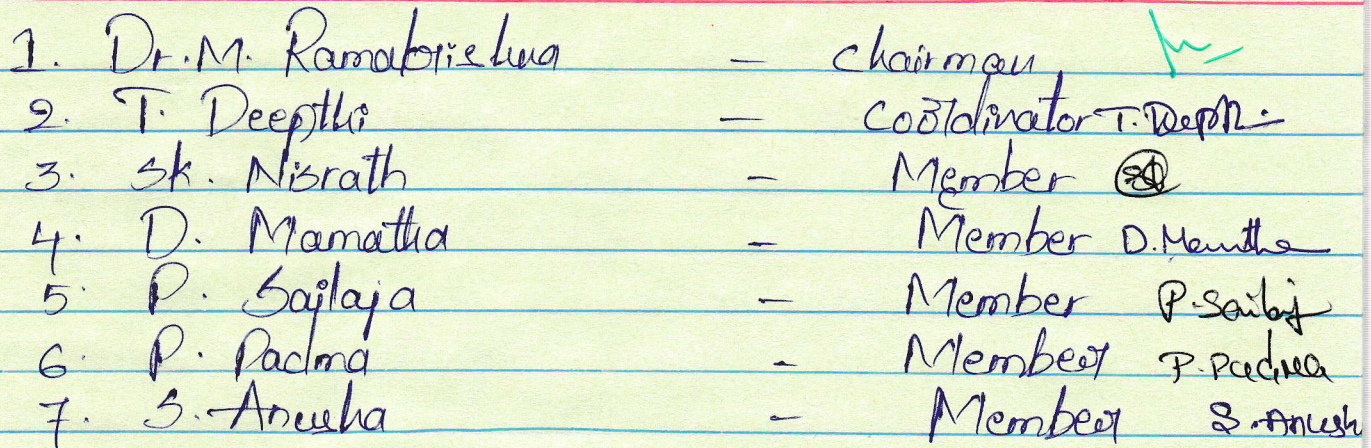 1. Dr. M. Ramakrishna - Chairman
2. T. Deepthi - Coordinator T. Deepthi
3. Sk. Nisrath - Member
4. D. Mamatha - Member D. Mamtha
5. P. Sailaja - Member P. Sailaj
6. P. Padma - Member P. Padma
7. S. Anusha - Member S. Anush